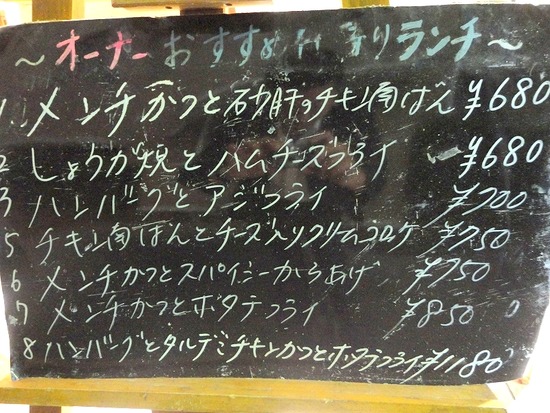 ～オーナーおすすめ日替りランチ～
1 メンチかつと砂肝のチキン南ばん ¥680
2 しょうが焼とハムチーズフライ ¥680
3 ハンバーグとアジフライ ¥700
5 チキン南ばんとチーズ入りクリームコロッケ ¥750
6 メンチかつとスパイシーからあげ ¥750
7 メンチかつとホタテフライ ¥850
8 ハンバーグとタルデミチキンかつとホタテフライ ¥1180